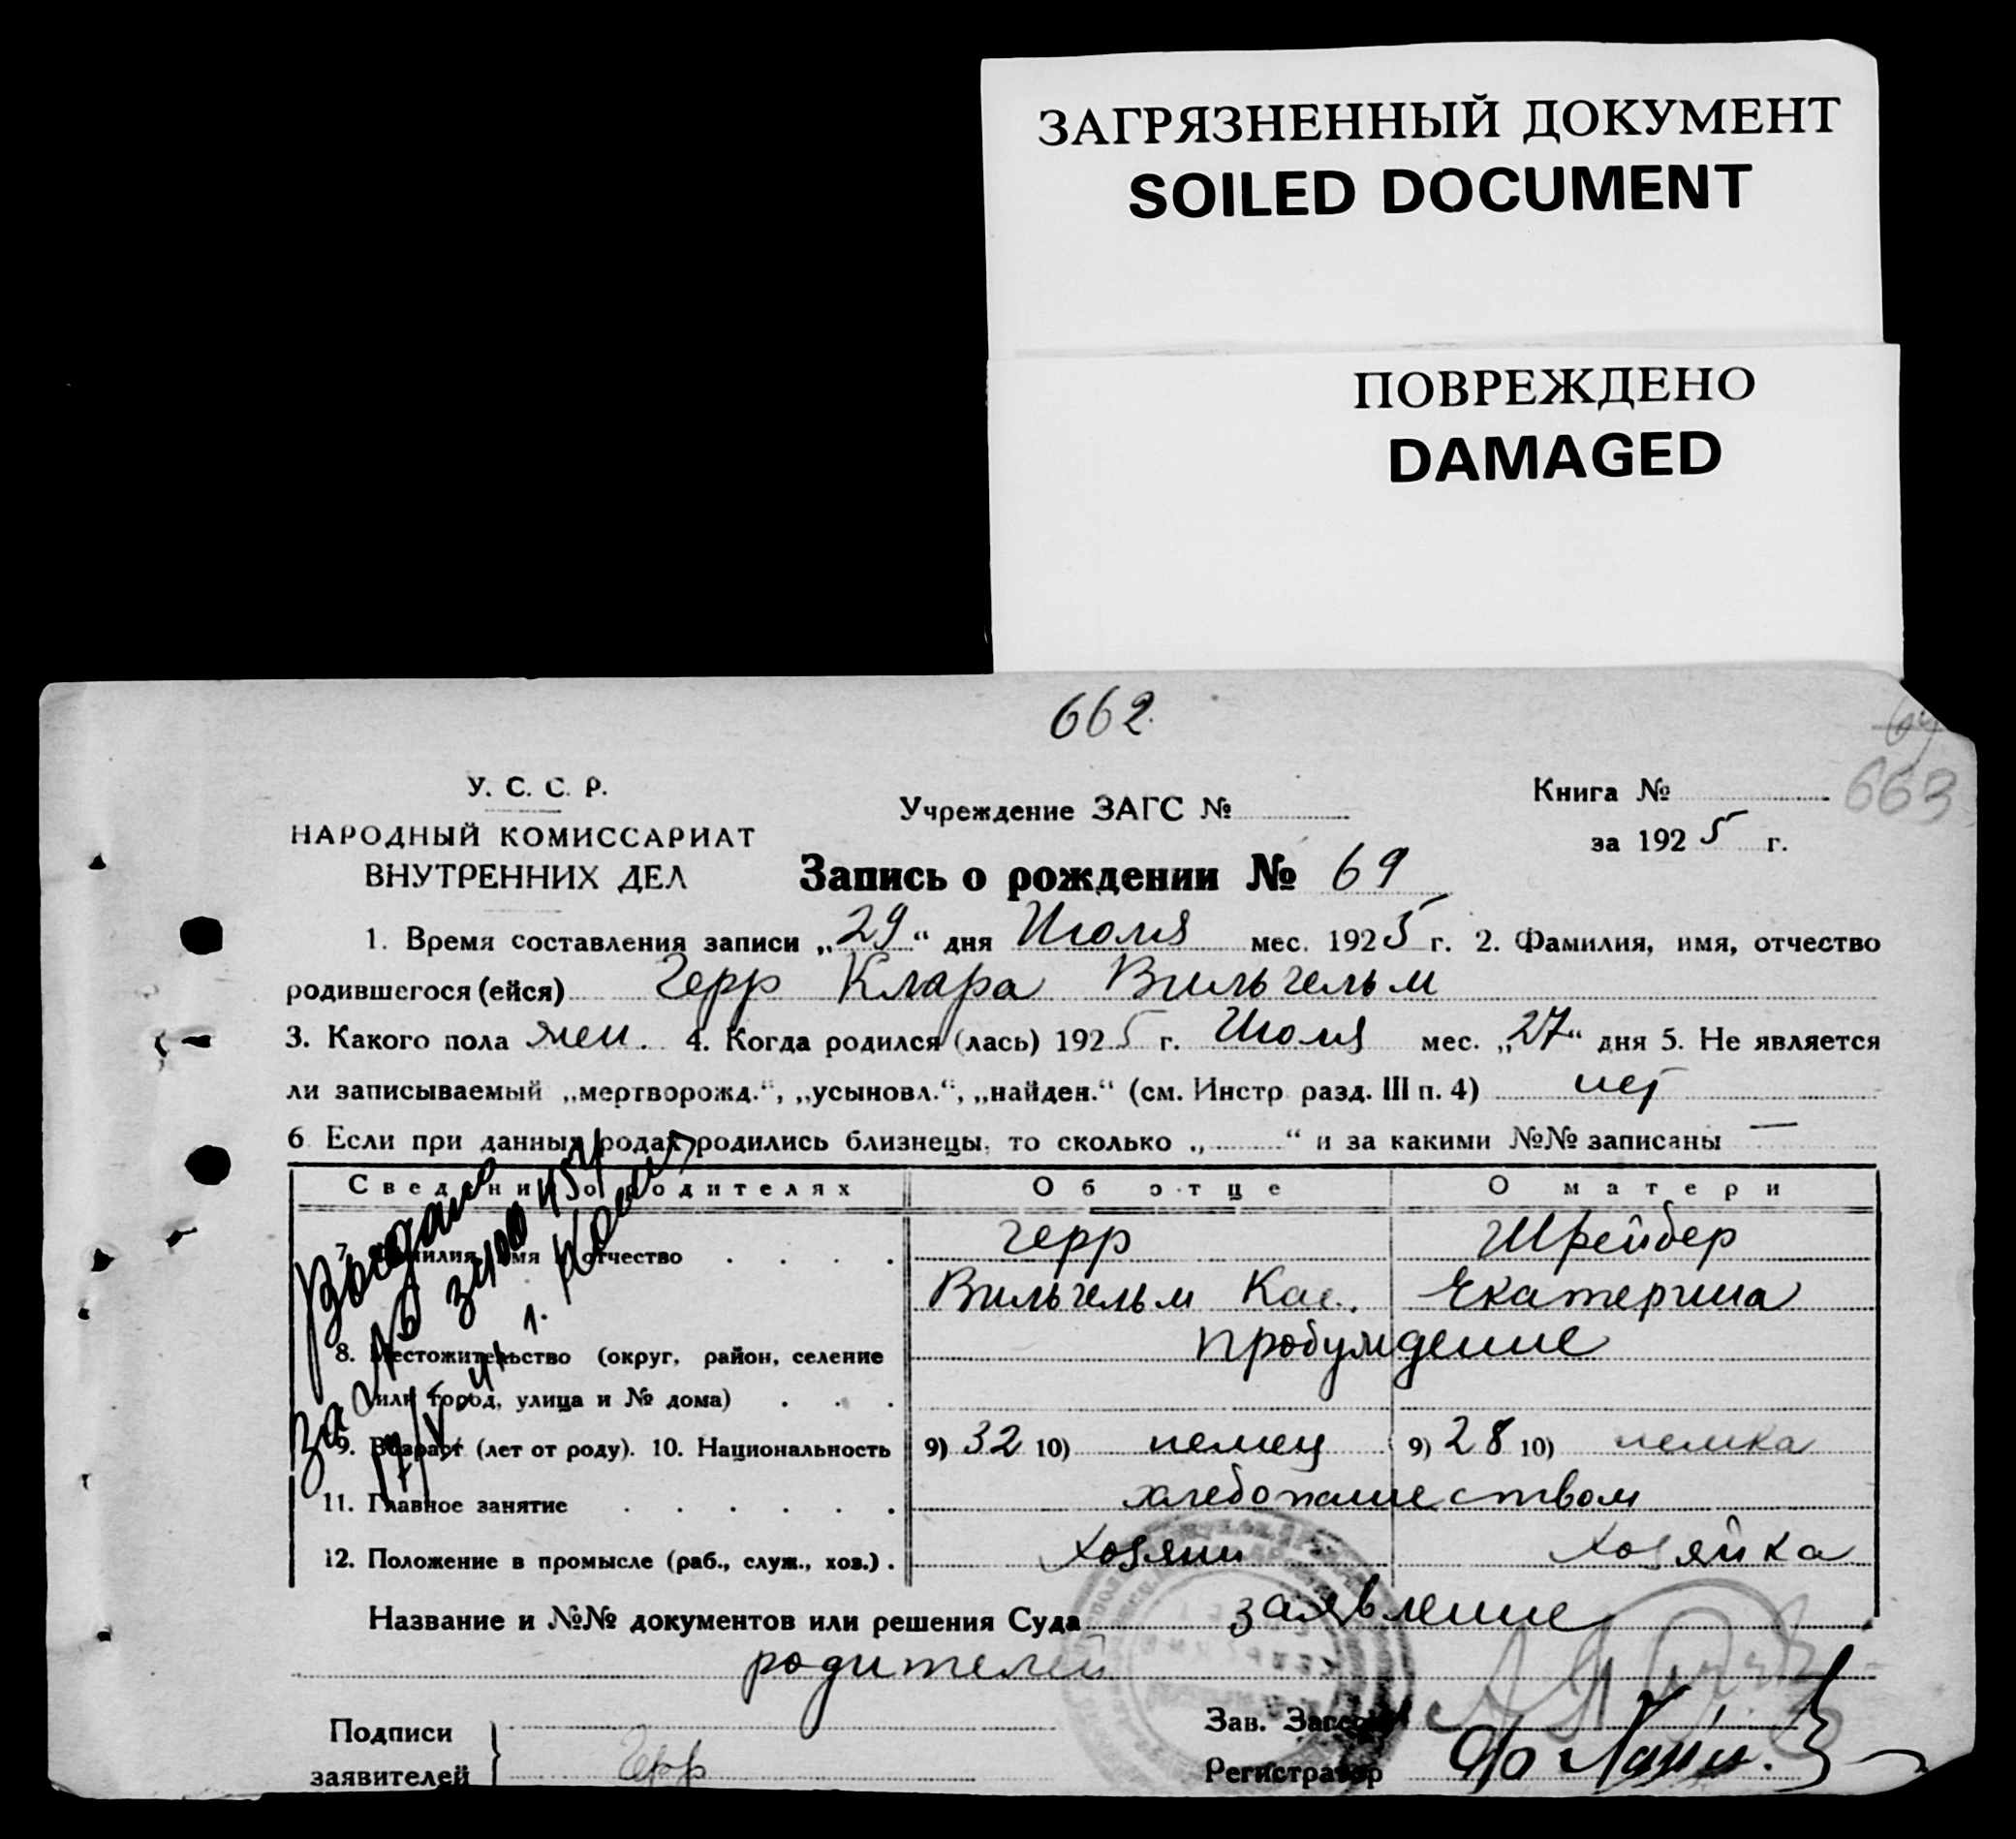 ЗАГРЯЗНЕННЫЙ ДОКУМЕНТ
SOILED DOCUMENT
ПОВРЕЖДЕНО
DAMAGED
662
69
663
У. С. С. Р.
НАРОДНЫЙ КОМИССАРИАТ
ВНУТРЕННИХ ДЕЛ
Учреждение ЗАГС №
Книга №
за 1925 г.
Запись о рождении № 69
1. Время составления записи „29“ дня Июля мес. 1925 г. 2. Фамилия, имя, отчество
родившегося (ейся) Герр Клара Вильгельм
3. Какого пола жен. 4. Когда родился (лась) 1925 г. Июля мес. „27“ дня 5. Не является
ли записываемый „мертворожд.“, „усыновл.“, „найден.“ (см. Инстр. разд. III п. 4) нет
6 Если при данных родах родились близнецы, то сколько „ “ и за какими №№ записаны —
Сведения о родителях Об отце О матери
7. Фамилия, имя, отчество Герр Шрейбер
Вильгельм Кас. Екатерина
8. Местожительство (округ, район, селение Пробуждение
или город, улица и № дома)
9. Возраст (лет от роду). 10. Национальность 9) 32 10) немец 9) 28 10) немка
11. Главное занятие хлебопашеством
12. Положение в промысле (раб., служ., хоз.) хозяин хозяйка
Название и №№ документов или решения Суда заявление
родителей
Подписи
заявителей Герр
Зав. Загсом
Регистратор